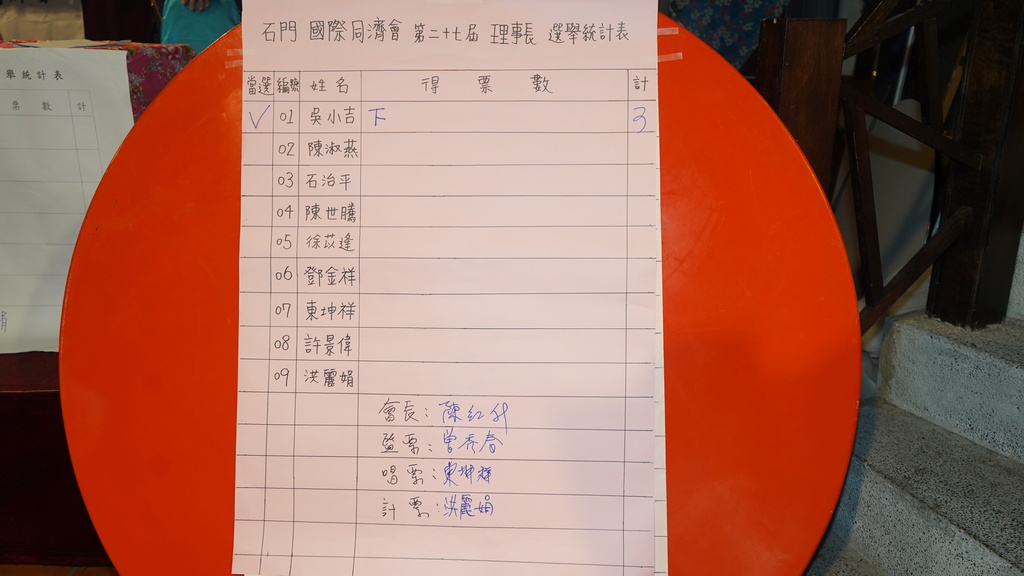 石門 國際同濟會 第二十七屆 理事長 選舉統計表
當選 編號 姓名 得票數 計
✓ 01 吳小吉 下 3
02 陳淑燕
03 石治平
04 陳世騰
05 徐苡逢
06 鄧金祥
07 東坤祥
08 許景偉
09 洪麗娟
會長：陳紅升
監票：曾秀春
唱票：東坤祥
計票：洪麗娟
舉統計表
票數 計